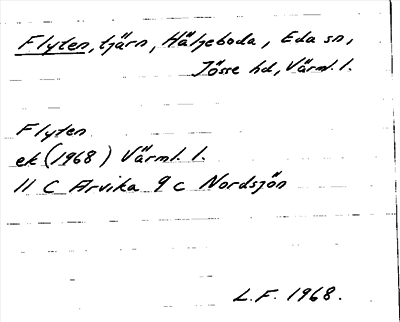 Flyten, tjärn, Häljeboda, Eda sn,
Jösse hd, Värml. l.
Flyten
ek (1968) Värml. l.
11 C Arvika 9 c Nordsjön
L.F. 1968.